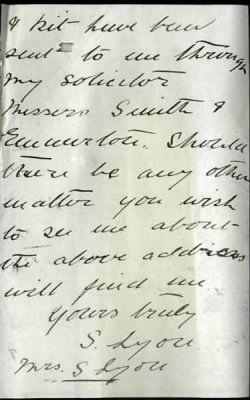 & kit have been
sent to me through
my solicitor
Messers Smith &
Emmerton. Should
there be any other
matter you wish
to see me about
the above address
will find me
Yours truly
S. Lyon
Mrs. S Lyon